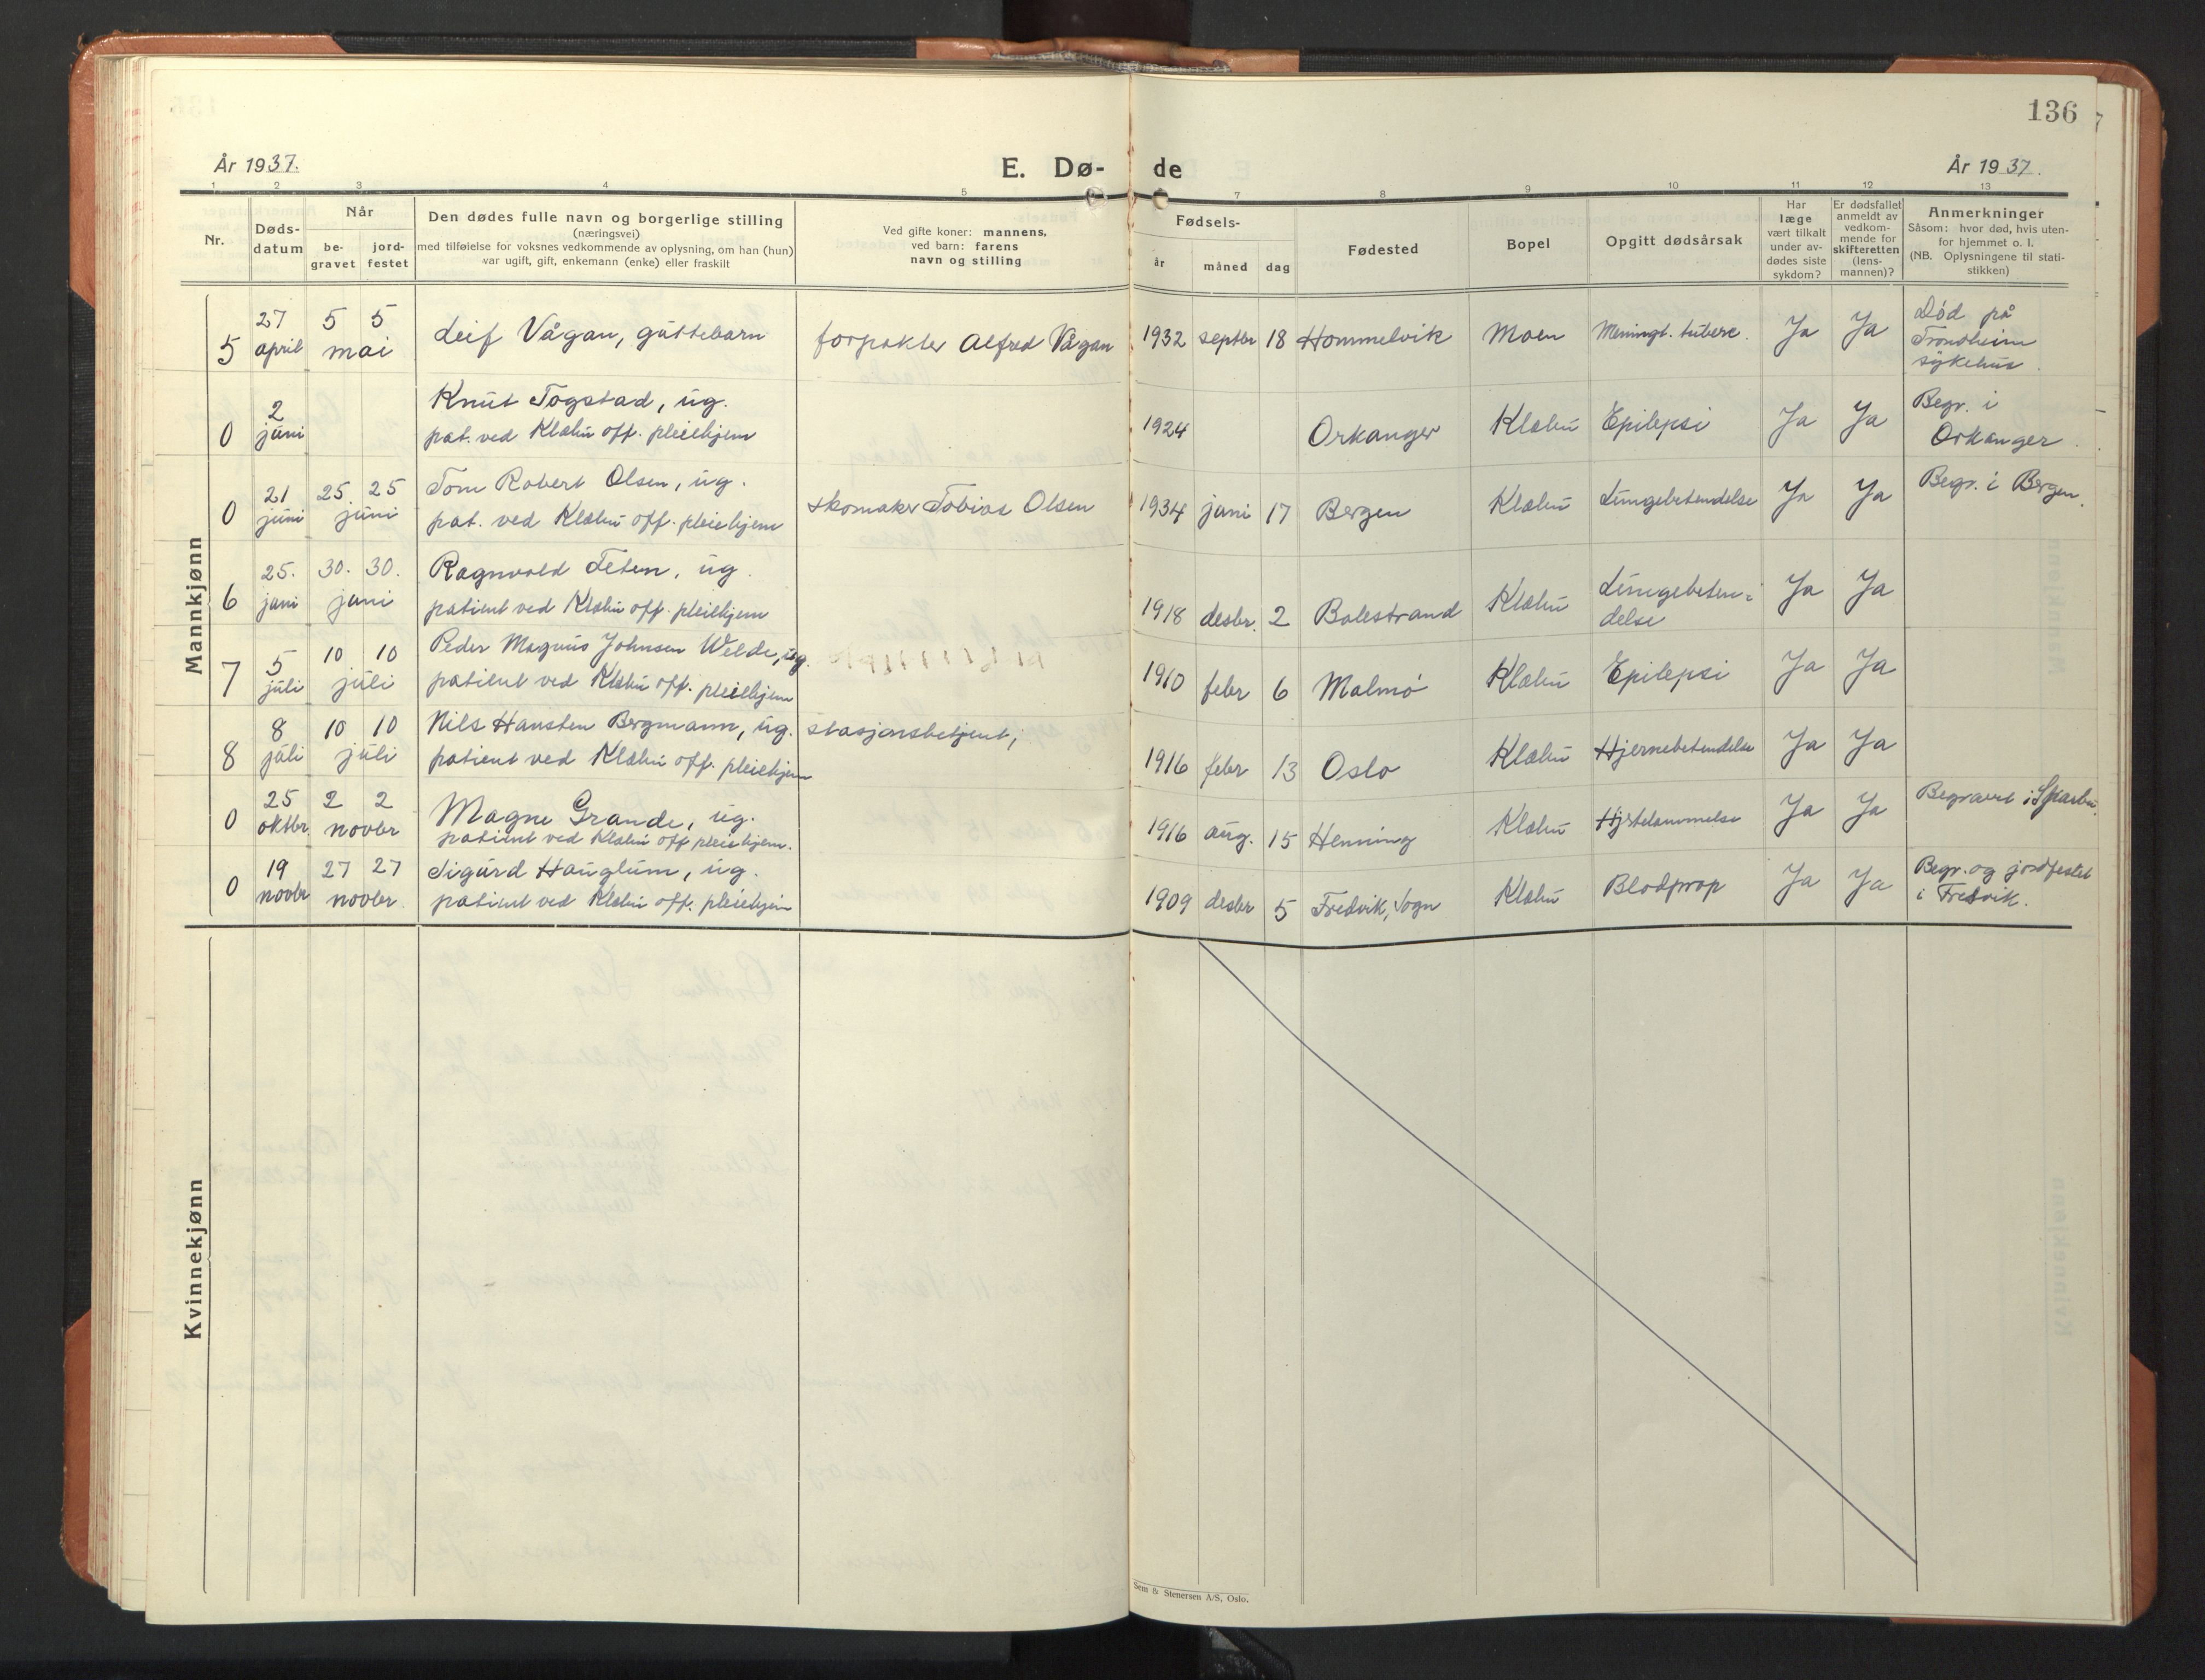 136
År 1937.
E. Dø- de
År 1937.
1 2 3 4 5 7 8 9 10 11 12 13
Nr.
Døds-
datum
Når
be-
gravet
jord-
festet
Den dødes fulle navn og borgerlige stilling
(næringsvei)
med tilføielse for voksnes vedkommende av oplysning, om han (hun)
var ugift, gift, enkemann (enke) eller fraskilt
Ved gifte koner: mannens,
ved barn: farens
navn og stilling
Fødsels-
år måned dag
Fødested
Bopel
Opgitt dødsårsak
Har
læge
vært tilkalt
under av-
dødes siste
sykdom?
Er dødsfallet
anmeldt av
vedkom-
mende for
skifteretten
(lens-
mannen)?
Anmerkninger
Såsom: hvor død, hvis uten-
for hjemmet o. l.
(NB. Oplysningene til stati-
stikken)
Mannkjønn
5 27 april 5 5 mai Leif Vågan, guttebarn forpakter Alfred Vågan 1932 septbr 18 Hommelvik Moen Meningt. tuberk. Ja Ja Død på
Trondheim
sykehus.
0 2 juni Knut Togstad, ug.
pat. ved Klæbu off. pleiehjem 1924 Orkanger Klæbu Epilepsi Ja Ja Begr. i
Orkanger.
0 21 juni 25. 25 juni Tom Robert Olsen, ug.
pat. ved Klæbu off. pleiehjem skomaker Tobias Olsen 1934 juni 17 Bergen Klæbu Lungebetendelse Ja Ja Begr. i Bergen.
6 25. juni 30. 30. juni Ragnvald Feten, ug.
patient ved Klæbu off. pleiehjem 1918 desbr. 2 Balestrand Klæbu Lungebeten-
delse Ja Ja
7 5 juli 10 10 juli Peder Magnus Johnsen Welde, ug.
patient ved Klæbu off. pleiehjem 1910 febr 6 Malmö Klæbu Epilepsi Ja Ja
8 8 juli 10 10 juli Nils Hansten Bergmann, ug. stasjonsbetjent,
patient ved Klæbu off. pleiehjem 1916 febr 13 Oslo Klæbu Hjernebetendelse Ja Ja
0 25 oktbr. 2 2 novbr Magne Grande, ug.
patient ved Klæbu off pleiehjem. 1916 aug. 15 Henning Klæbu Hjertelammelse Ja Ja Begravet i Sparbu.
0 19 novbr 27 27 novbr. Sigurd Hauglum, ug.
patient ved Klæbu off. pleiehjem 1909 desbr 5 Fresvik, Sogn Klæbu Blodprop Ja Ja Begr. og jordfestet
i Fresvik.
Kvinnekjønn
Sem & Stenersen A/S, Oslo.